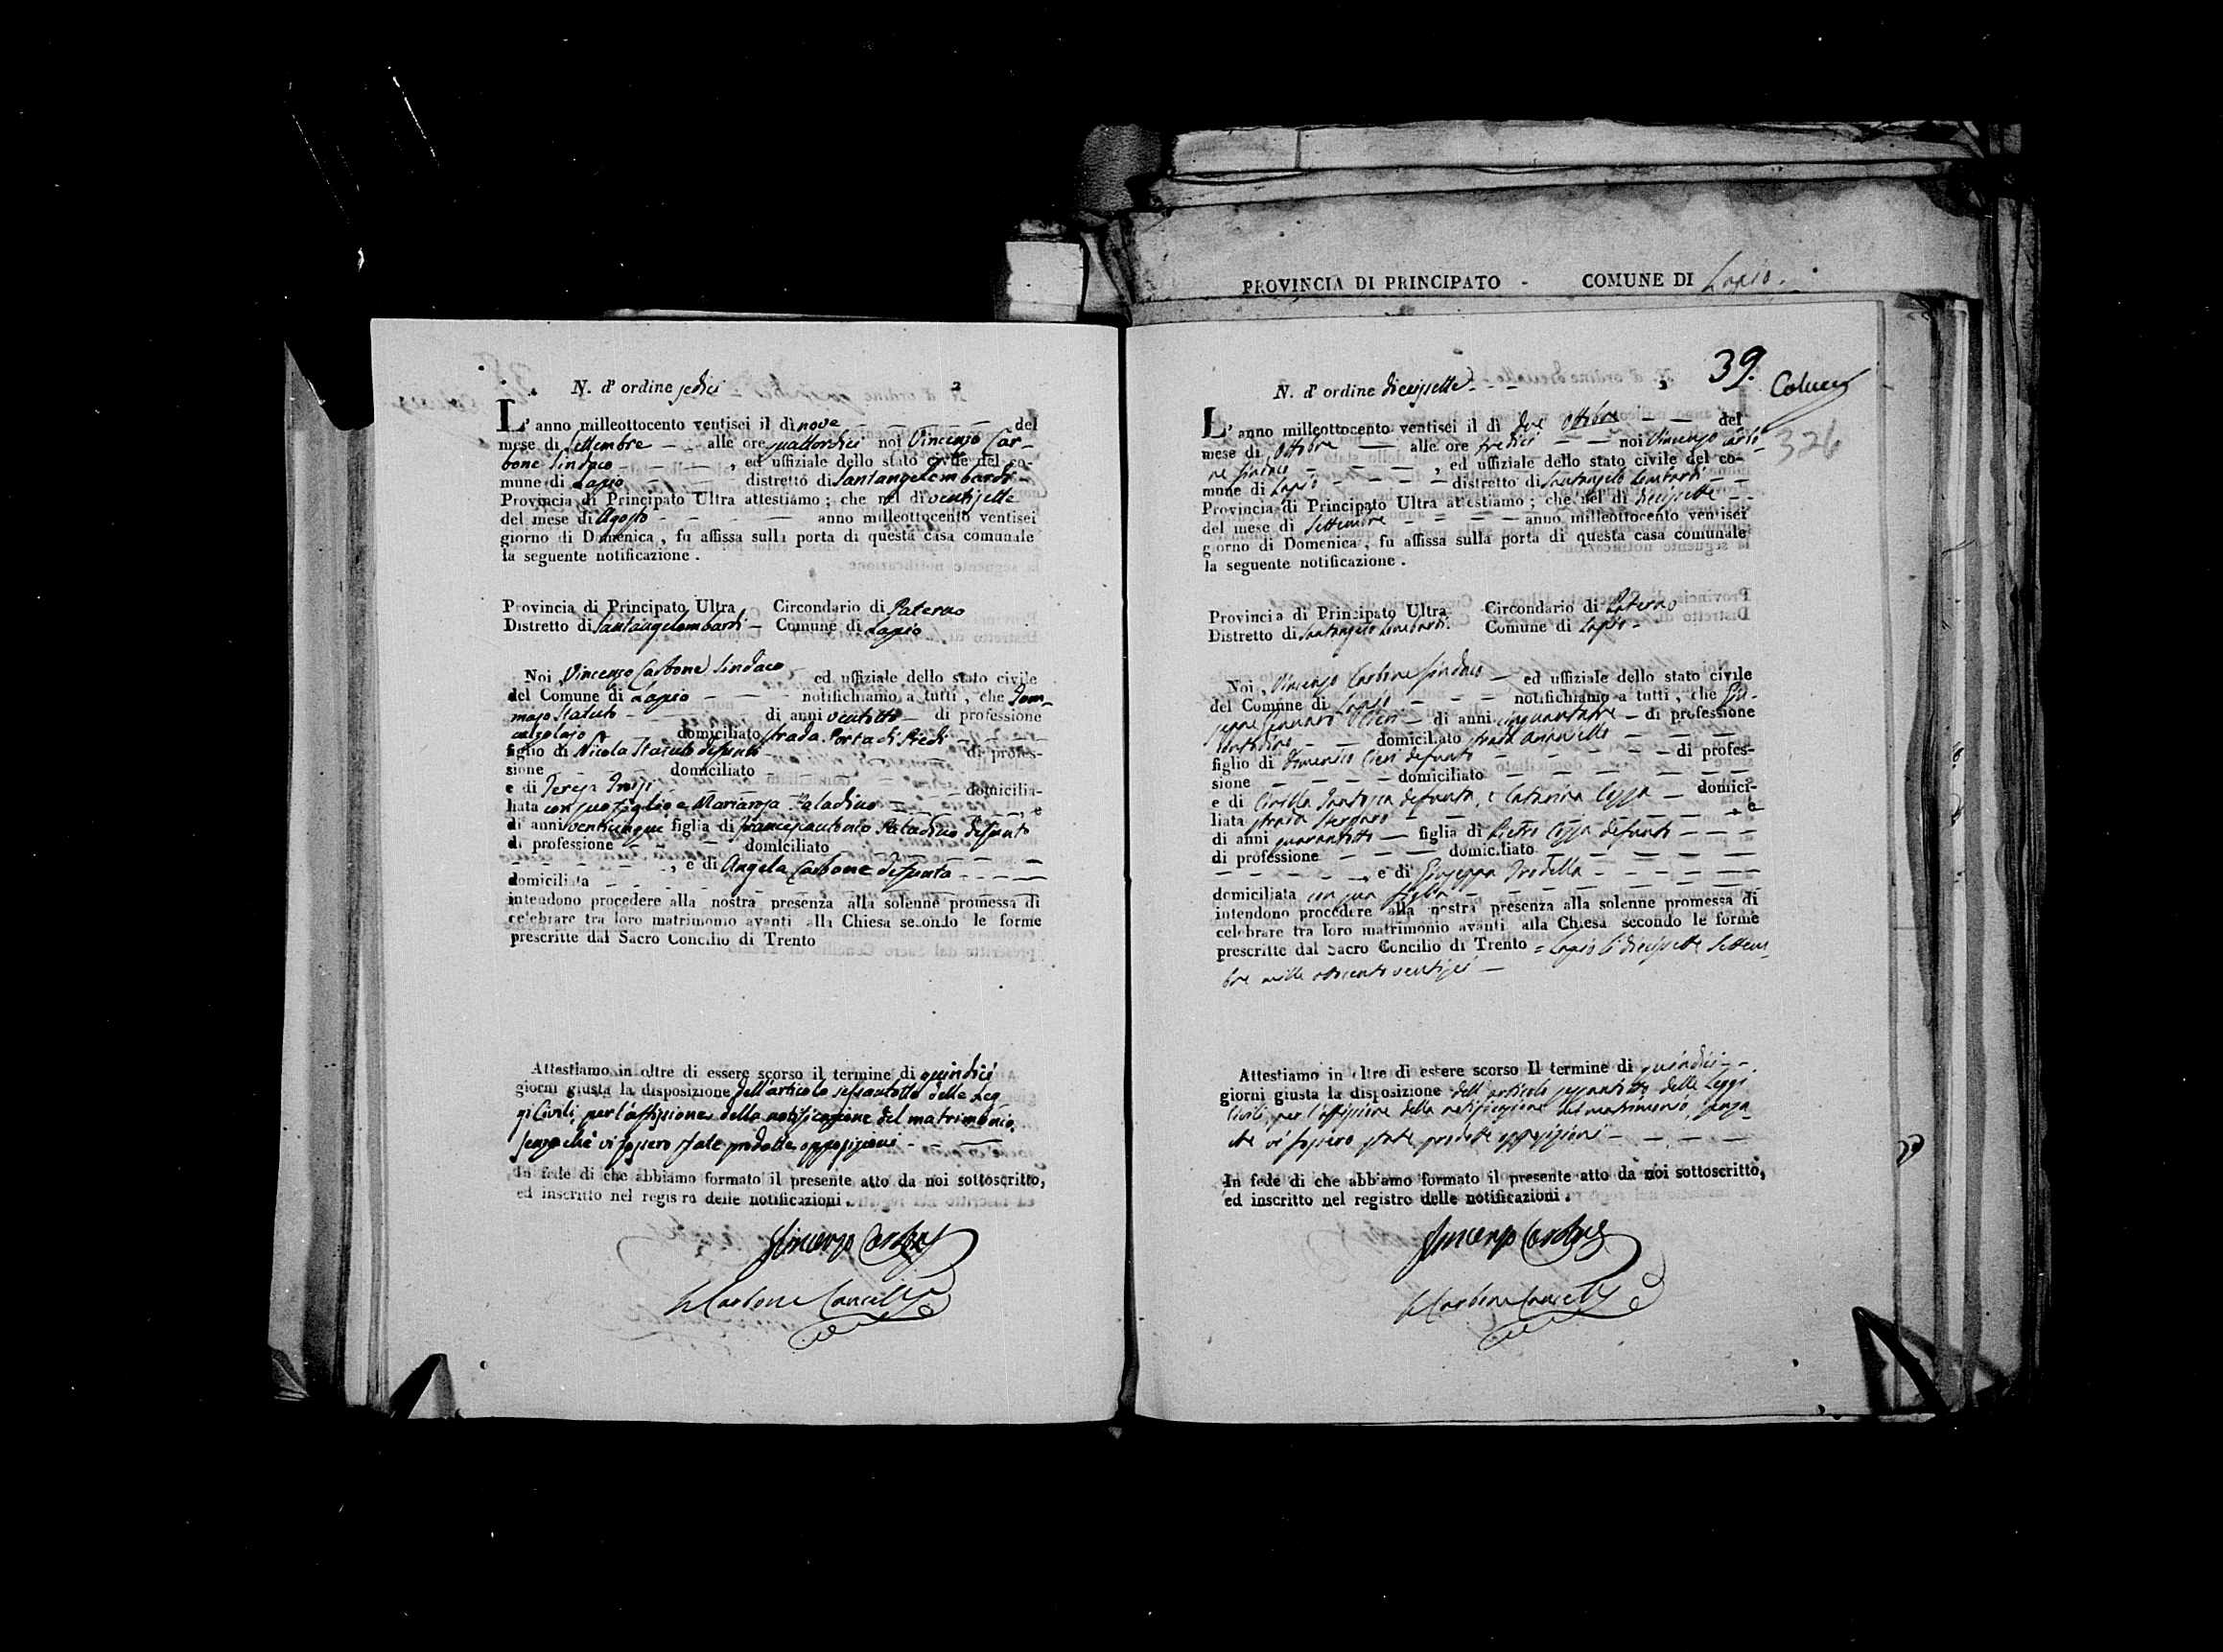 PROVINCIA DI PRINCIPATO - COMUNE DI Lapio.
N. d' ordine sedici
2
L' anno milleottocento ventisei il dì nove del
mese di Settembre alle ore quattordici noi Vincenzo Car-
bone Sindaco , ed uffiziale dello stato civile del co-
mune di Lapio distretto di Santangelombardi
Provincia di Principato Ultra attestiamo ; che nel dì ventisette
del mese di Agosto anno milleottocento ventisei
giorno di Domenica , fu affissa sulla porta di questa casa comunale
la seguente notificazione .
Provincia di Principato Ultra Circondario di Paterno
Distretto di Santangelombardi Comune di Lapio
Noi , Vincenzo Carbone Sindaco ed uffiziale dello stato civile
del Comune di Lapio notifichiamo a tutti , che Tom-
maso Statuto di anni ventotto di professione
calzolajo domiciliato strada Porta di Piedi
figlio di Nicola Statuto defunto di profes-
sione domiciliato
e di Teresa domicilia-
liata con suo figlio e Marianna Paladino e
di anni venticinque figlia di Francescantonio Paladino defunto
di professione domiciliato
, e di Angela Carbone defunta
domiciliata
intendono procedere alla nostra presenza alla solenne promessa di
celebrare tra loro matrimonio avanti alla Chiesa secondo le forme
prescritte dal Sacro Concilio di Trento
Attestiamo in oltre di essere scorso il termine di quindici
giorni giusta la disposizione dell'articolo sessantotto delle Leg
gi Civili, per l'affissione della notificazione del matrimonio,
senzache vi fossero state prodotte opposizioni
In fede di che abbiamo formato il presente atto da noi sottoscritto,
ed inscritto nel registro delle notificazioni .
Vincenzo Carbone
Carbone Cancell
39.
N. d' ordine diecissette
Colucci
326
L' anno milleottocento ventisei il dì due Ottobre del
mese di Ottobre alle ore tredici noi Vincenzo Carbo
ne Sindaco , ed uffiziale dello stato civile del co-
mune di Lapio distretto di Santangelo Lombardi
Provincia di Principato Ultra attestiamo ; che nel dì diecissette
del mese di Settembre anno milleottocento ventisei
giorno di Domenica , fu affissa sulla porta di questa casa comunale
la seguente notificazione .
Provincia di Principato Ultra Circondario di Paterno
Distretto di Santangelo Lombardi Comune di Lapio
Noi , Vincenzo Carbone Sindaco ed uffiziale dello stato civile
del Comune di Lapio notifichiamo a tutti , che Giu-
seppe Gennaro di anni cinquantatre di professione
domiciliato strada
figlio di Domenico Cieri defunto di profes-
sione domiciliato
e di defunta, e Catarina domici-
liata strada e
di anni quarantotto figlia di Pietro defunto
di professione domiciliato
, e di Giuseppa
domiciliata con sua figlia
intendono procedere alla nostra presenza alla solenne promessa di
celebrare tra loro matrimonio avanti alla Chiesa secondo le forme
prescritte dal Sacro Concilio di Trento = Lapio li diecissette Settem
bre mille ottocento ventisei
Attestiamo in oltre di essere scorso Il termine di quindici
giorni giusta la disposizione dell'articolo sessantotto delle Leggi
Civili, per l'affissione della notificazione del matrimonio, senza
che vi fossero state prodotte opposizioni
In fede di che abbiamo formato il presente atto da noi sottoscritto,
ed inscritto nel registro delle notificazioni .
Vincenzo Carbone
Carbone Cancell